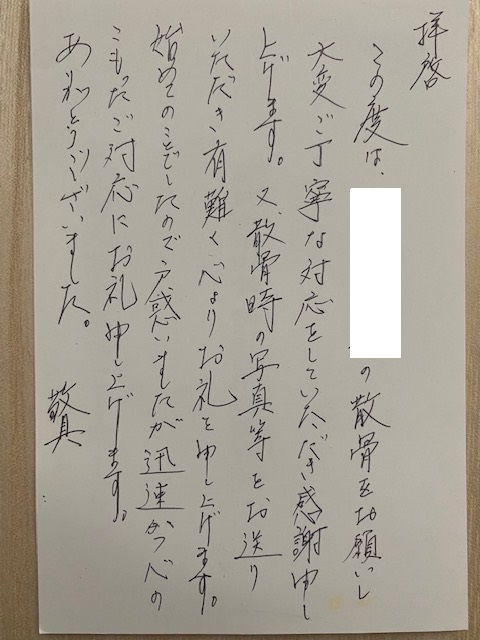 拝啓
この度は、の散骨をお願いし
大変ご丁寧な対応をしていただき感謝申し
上げます。又、散骨時の写真等をお送り
いただき有難く心よりお礼を申し上げます。
始めてのことでしたので戸惑いましたが迅速かつ心の
こもったご対応にお礼申し上げます。
ありがとうございました。
敬具